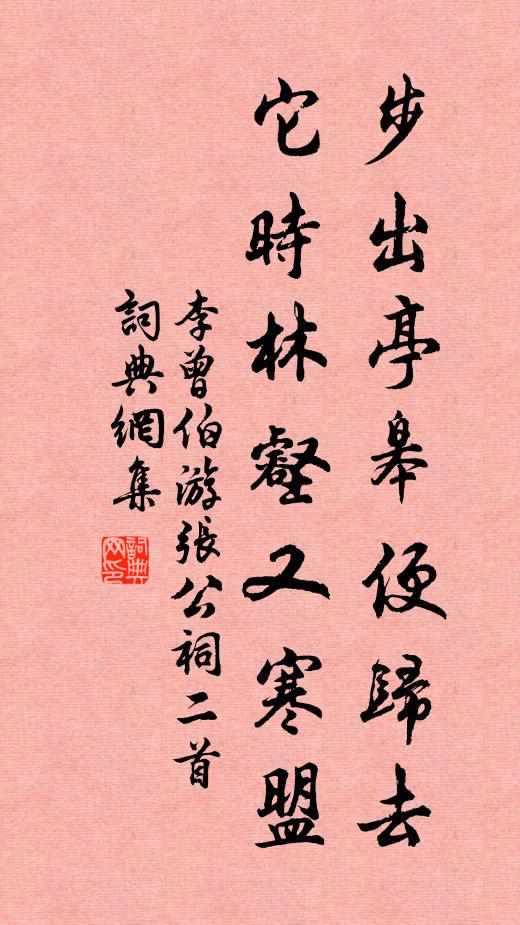 步出亭皋便歸去
它時林壑又寒盟
李曾伯游張公祠二首
詞典網集
詞典
网印